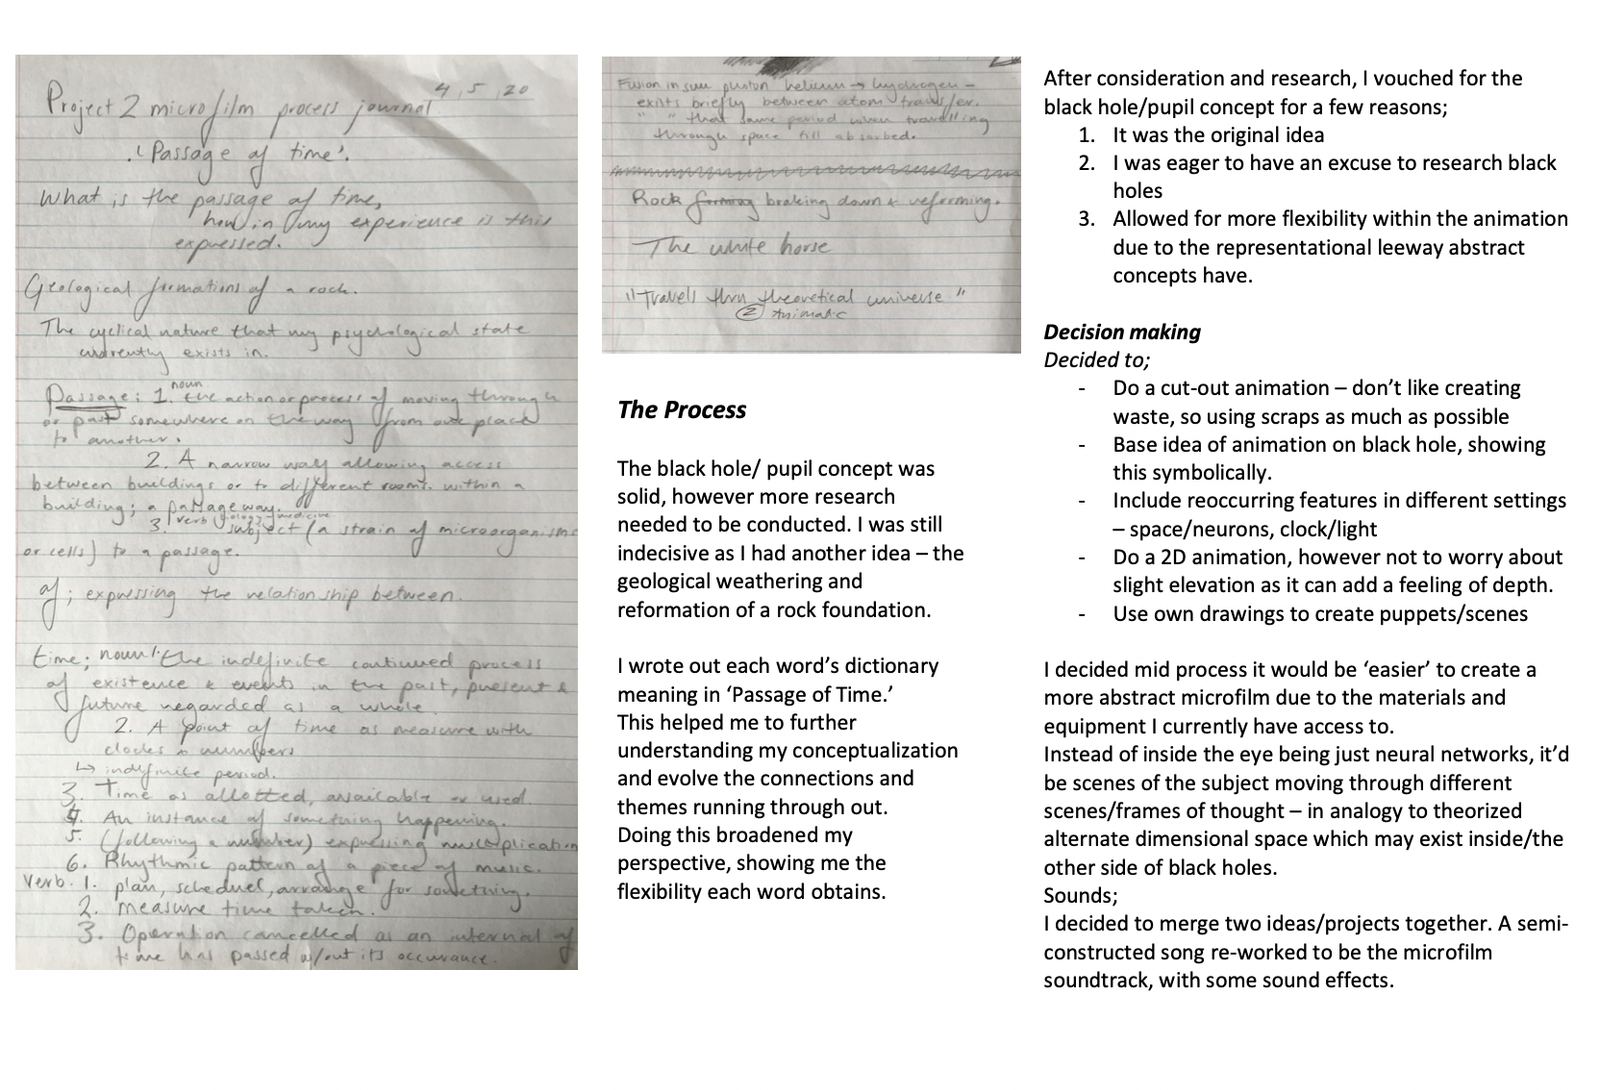 Project 2 microfilm process journal 4, 5, 20
'Passage of time'.
What is the passage of time,
how in my experience is this
expressed.
Geological formations of a rock.
The cyclical nature that my psychological state
currently exists in.
Passage: 1. noun the action or process of moving through
or past somewhere on the way from one place
to another.
2. A narrow way allowing access
between buildings or to different rooms within a
building; a passageway.
3. verb biology medicine subject (a strain of microorganisms
or cells) to a passage.
of; expressing the relationship between.
time; noun 1. the indefinite continued process
of existence & events in the past, present &
future regarded as a whole.
2. A point of time as measure with
clocks numbers
↳ indefinite period.
3. Time as allotted, available or used.
4. An instance of something happening.
5. (following a number) expressing multiplication
6. Rhythmic pattern of a piece of music.
Verb. 1. plan, scheduel, arrange for something.
2. measure time taken.
3. Operation cancelled as an internal of
time has passed w/out its occurance.
Fusion in sun photon helium → hydrogen -
exists briefly between atom transfer.
" " that same period when travelling
through space till absorbed.
Rock forming braking down & reforming.
The white horse
"Travels thru theoretical universe"
② Animatic
The Process
The black hole/ pupil concept was
solid, however more research
needed to be conducted. I was still
indecisive as I had another idea – the
geological weathering and
reformation of a rock foundation.
I wrote out each word's dictionary
meaning in 'Passage of Time.'
This helped me to further
understanding my conceptualization
and evolve the connections and
themes running through out.
Doing this broadened my
perspective, showing me the
flexibility each word obtains.
After consideration and research, I vouched for the
black hole/pupil concept for a few reasons;
1. It was the original idea
2. I was eager to have an excuse to research black
holes
3. Allowed for more flexibility within the animation
due to the representational leeway abstract
concepts have.
Decision making
Decided to;
- Do a cut-out animation – don't like creating
waste, so using scraps as much as possible
- Base idea of animation on black hole, showing
this symbolically.
- Include reoccurring features in different settings
– space/neurons, clock/light
- Do a 2D animation, however not to worry about
slight elevation as it can add a feeling of depth.
- Use own drawings to create puppets/scenes
I decided mid process it would be 'easier' to create a
more abstract microfilm due to the materials and
equipment I currently have access to.
Instead of inside the eye being just neural networks, it'd
be scenes of the subject moving through different
scenes/frames of thought – in analogy to theorized
alternate dimensional space which may exist inside/the
other side of black holes.
Sounds;
I decided to merge two ideas/projects together. A semi-
constructed song re-worked to be the microfilm
soundtrack, with some sound effects.